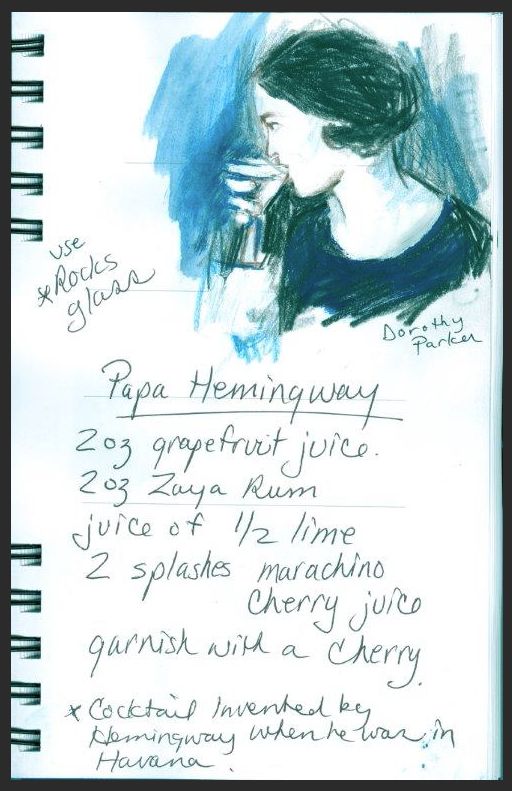 use
*Rocks
glass
Dorothy
Parker
Papa Hemingway
2oz grapefruit juice.
2oz Zaya Rum
juice of 1/2 lime
2 splashes marachino
cherry juice
garnish with a cherry.
* Cocktail invented by
Hemingway when he was in
Havana.